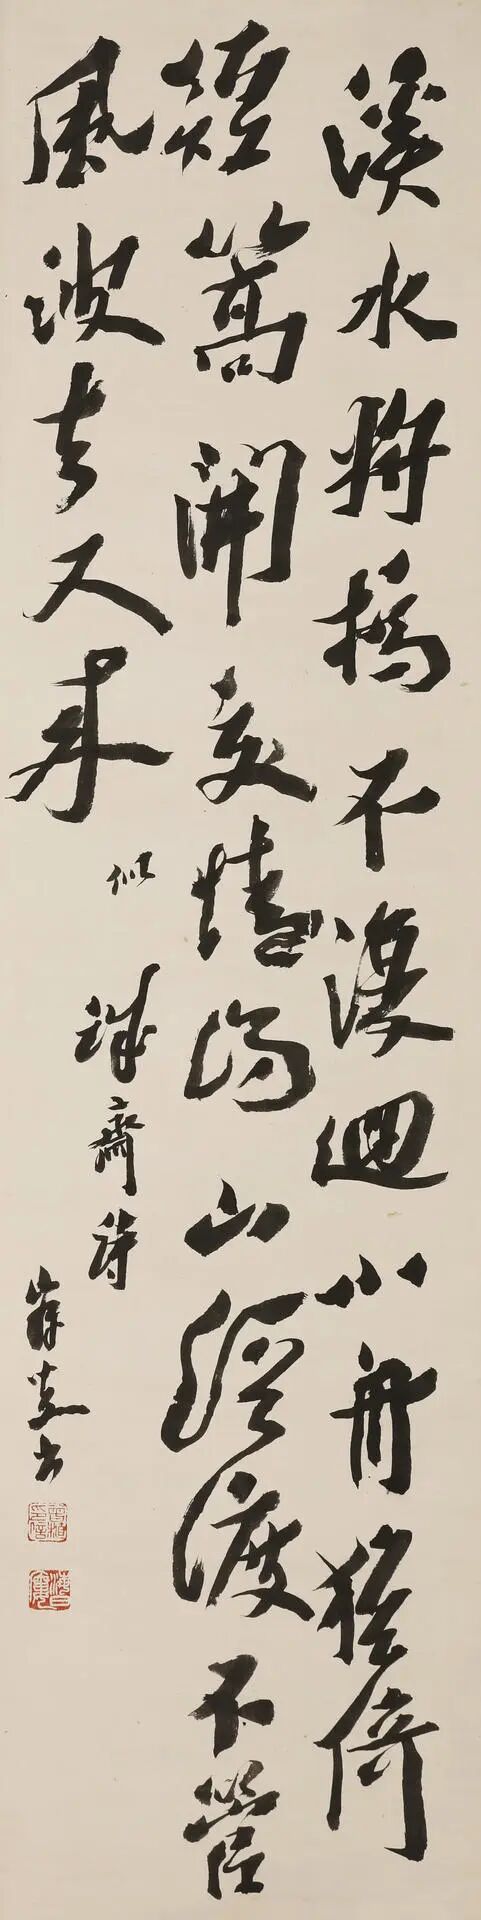 溪水將橋不復迴小舟猶倚
短篙開交情得山谿渡不管
風波去又來
似
誠齋詩